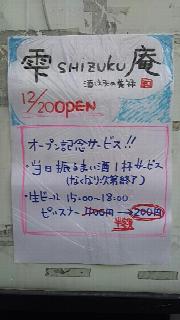 雫 SHIZUKU 庵
12/20 OPEN
オープン記念サービス!!
・当日振るまい酒1杯サービス
(なくなり次第終了)
・生ビール 15:00~18:00
ピルスナー 400円→200円
半額